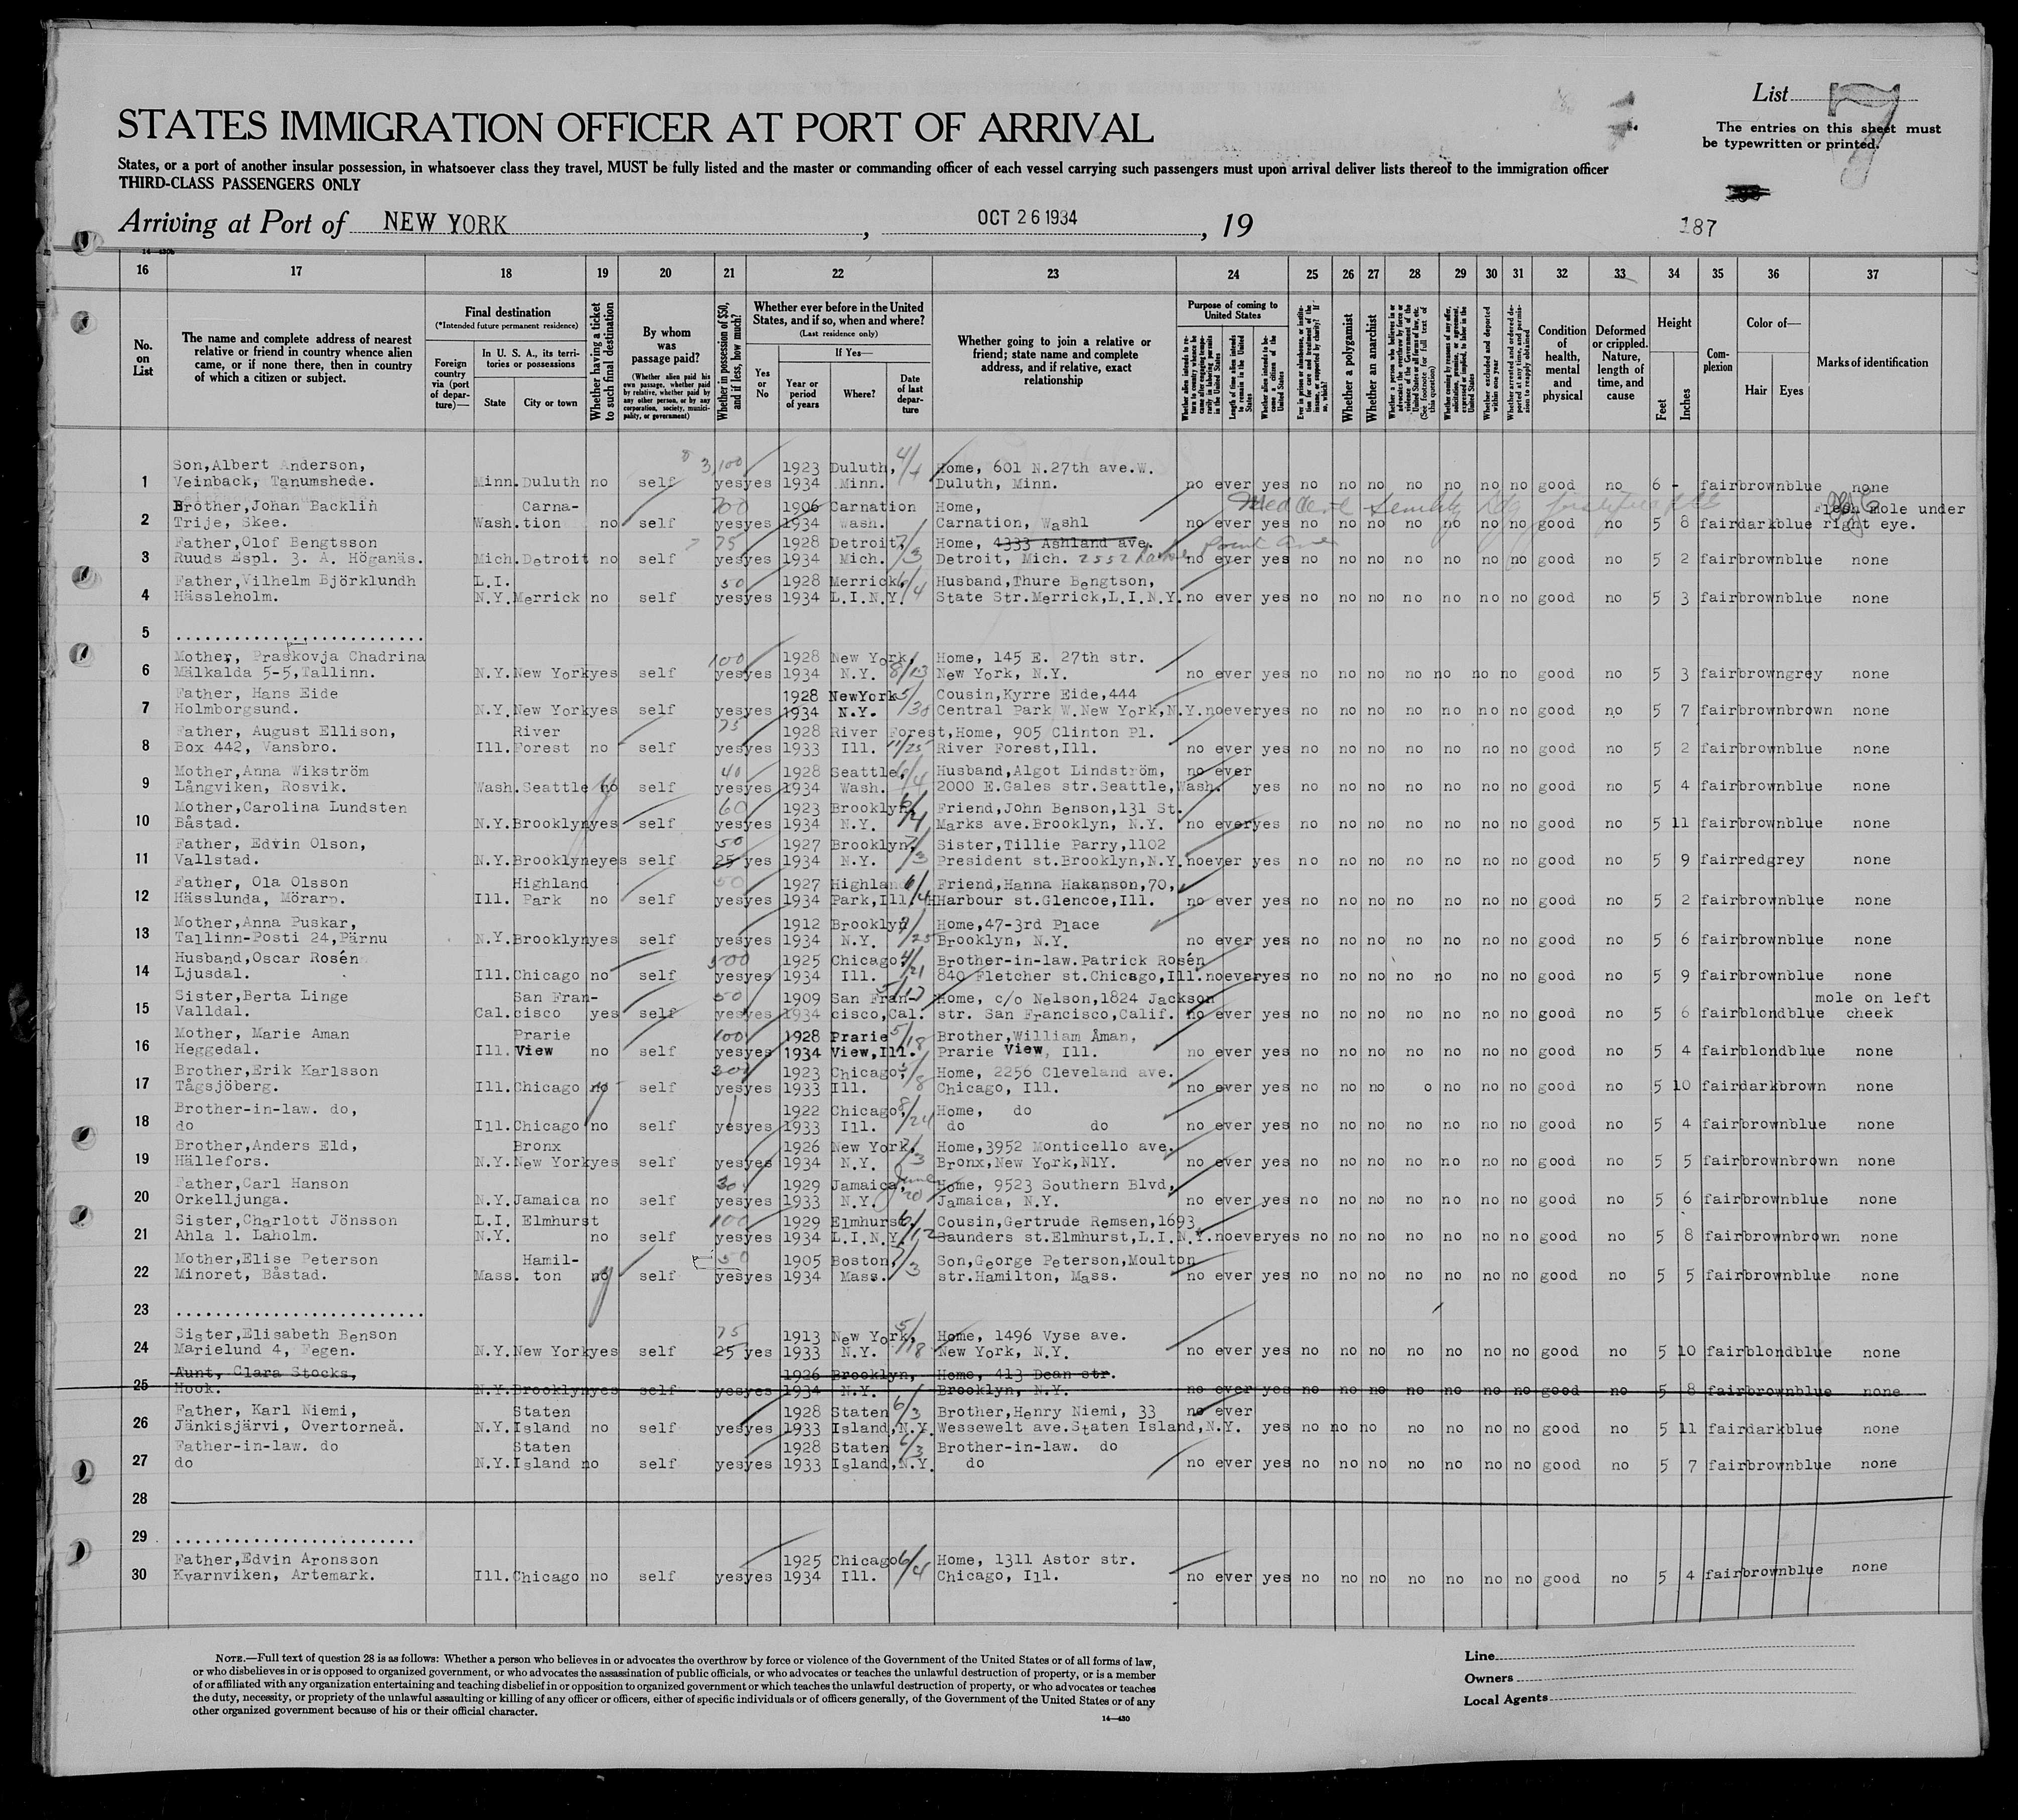 List 7
STATES IMMIGRATION OFFICER AT PORT OF ARRIVAL
The entries on this sheet must
be typewritten or printed.
States, or a port of another insular possession, in whatsoever class they travel, MUST be fully listed and the master or commanding officer of each vessel carrying such passengers must upon arrival deliver lists thereof to the immigration officer
THIRD-CLASS PASSENGERS ONLY
Arriving at Port of NEW YORK, OCT 26 1934, 19
187
14-430b
16 17 18 19 20 21 22 23 24 25 26 27 28 29 30 31 32 33 34 35 36 37
No. on List
The name and complete address of nearest relative or friend in country whence alien came, or if none there, then in country of which a citizen or subject.
Final destination
(*Intended future permanent residence)
Foreign country via (port of departure)—
In U. S. A., its territories or possessions
State
City or town
Whether having a ticket to such final destination
By whom was passage paid?
(Whether alien paid his own passage, whether paid by relative, whether paid by any other person, or by any corporation, society, municipality, or government)
Whether in possession of $50, and if less, how much?
Whether ever before in the United States, and if so, when and where?
(Last residence only)
Yes or No
If Yes—
Year or period of years
Where?
Date of last departure
Whether going to join a relative or friend; state name and complete address, and if relative, exact relationship
Purpose of coming to United States
Length of time alien intends to remain in the United States
Whether alien intends to become a citizen of the United States
Whether a polygamist
Whether an anarchist
Condition of health, mental and physical
Deformed or crippled. Nature, length of time, and cause
Height
Feet
Inches
Complexion
Color of—
Hair
Eyes
Marks of identification
1 Son,Albert Anderson, Veinback, Tanumshede. Minn. Duluth no self 3,100 yes yes 1923 1934 Duluth, Minn. 4/4 Home, 601 N.27th ave.W. Duluth, Minn. no ever yes no no no no no no no good no 6 - fair brown blue none
2 Brother,Johan Backlin Trije, Skee. Wash. Carna-tion no self 700 yes yes 1906 1934 Carnation Wash. Home, Carnation, Washl no ever yes no no no no no no no good no 5 8 fair dark blue Flesh mole under right eye.
3 Father,Olof Bengtsson Ruuds Espl. 3. A. Höganäs. Mich. Detroit no self 75 yes yes 1928 1934 Detroit, Mich. 7/3 Home, 4333 Ashland ave. Detroit, Mich. 2552 no ever yes no no no no no no no good no 5 2 fair brown blue none
4 Father,Vilhelm Björklundh Hässleholm. L.I. N.Y. Merrick no self 50 yes yes 1928 1934 Merrick, L.I.N.Y. 6/4 Husband,Thure Bengtson, State Str.Merrick,L.I.N.Y. no ever yes no no no no no no no good no 5 3 fair brown blue none
5 .........................
6 Mother, Praskovja Chadrina Mälkalda 5-5,Tallinn. N.Y. New York yes self 100 yes yes 1928 1934 New York, N.Y. 8/13 Home, 145 E. 27th str. New York, N.Y. no ever yes no no no no no no no good no 5 3 fair brown grey none
7 Father, Hans Eide Holmborgsund. N.Y. New York yes self yes yes 1928 1934 NewYork N.Y. 5/30 Cousin,Kyrre Eide,444 Central Park W.New York,N.Y. no ever yes no no no no no no no good no 5 7 fair brown brown none
8 Father, August Ellison, Box 442, Vansbro. Ill. River Forest no self 75 yes yes 1928 1933 River Forest, Ill. 11/25 Home, 905 Clinton Pl. River Forest,Ill. no ever yes no no no no no no no good no 5 2 fair brown blue none
9 Mother,Anna Wikström Långviken, Rosvik. Wash. Seattle no self 40 yes yes 1928 1934 Seattle, Wash. 6/4 Husband,Algot Lindström, 2000 E.Gales str.Seattle,Wash. no ever yes no no no no no no no good no 5 4 fair brown blue none
10 Mother,Carolina Lundsten Båstad. N.Y. Brooklyn yes self 60 yes yes 1923 1934 Brooklyn, N.Y. 6/4 Friend,John Benson,131 St. Marks ave.Brooklyn, N.Y. no ever yes no no no no no no no good no 5 11 fair brown blue none
11 Father, Edvin Olson, Vallstad. N.Y. Brooklyn eyes self 50 25 yes 1927 1934 Brooklyn, N.Y. 7/3 Sister,Tillie Parry,1102 President st.Brooklyn,N.Y. no ever yes no no no no no no no good no 5 9 fair red grey none
12 Father, Ola Olsson Hässlunda, Mörarp. Ill. Highland Park no self 50 yes yes 1927 1934 Highland Park,Ill. 6/4 Friend,Hanna Hakanson,70, Harbour st.Glencoe,Ill. no ever yes no no no no no no no good no 5 2 fair brown blue none
13 Mother,Anna Puskar, Tallinn-Posti 24,Pärnu N.Y. Brooklyn yes self yes yes 1912 1934 Brooklyn N.Y. Home,47-3rd Place Brooklyn, N.Y. no ever yes no no no no no no no good no 5 6 fair brown blue none
14 Husband,Oscar Rosén Ljusdal. Ill. Chicago no self 500 yes yes 1925 1934 Chicago, Ill. 4/21 Brother-in-law.Patrick Rosén 840 Fletcher st.Chicago,Ill. no ever yes no no no no no no no good no 5 9 fair brown blue none
15 Sister,Berta Linge Valldal. Cal. San Fran-cisco yes self 50 yes yes 1909 1934 San Fran-cisco,Cal. Home, c/o Nelson,1824 Jackson str. San Francisco,Calif. no ever yes no no no no no no no good no 5 6 fair blond blue mole on left cheek
16 Mother, Marie Aman Heggedal. Ill. Prarie View no self 100 yes yes 1928 1934 Prarie View,Ill. 5/18 Brother,William Åman, Prarie View, Ill. no ever yes no no no no no no no good no 5 4 fair blond blue none
17 Brother,Erik Karlsson Tågsjöberg. Ill. Chicago no self 300 yes yes 1923 1933 Chicago, Ill. Home, 2256 Cleveland ave. Chicago, Ill. no ever yes no no no o no no no good no 5 10 fair dark brown none
18 Brother-in-law. do, do Ill. Chicago no self yes yes 1922 1933 Chicago, Ill. 8/24 Home, do do do no ever yes no no no no no no no good no 5 4 fair brown blue none
19 Brother,Anders Eld, Hällefors. N.Y. Bronx New York yes self yes yes 1926 1934 New York, N.Y. Home,3952 Monticello ave. Bronx,New York,NlY. no ever yes no no no no no no no good no 5 5 fair brown brown none
20 Father,Carl Hanson Orkelljunga. N.Y. Jamaica no self 30 yes yes 1929 1933 Jamaica, N.Y. June 20 Home, 9523 Southern Blvd, Jamaica, N.Y. no ever yes no no no no no no no good no 5 6 fair brown blue none
21 Sister,Charlott Jönsson Ahla 1. Laholm. L.I. N.Y. Elmhurst no self 100 yes yes 1929 1934 Elmhurst L.I.N.Y. 6/12 Cousin,Gertrude Remsen,1693 Saunders st.Elmhurst,L.I.N.Y. no ever yes no no no no no no no good no 5 8 fair brown brown none
22 Mother,Elise Peterson Minoret, Båstad. Mass. Hamil-ton no self 50 yes yes 1905 1934 Boston, Mass. Son,George Peterson,Moulton str.Hamilton, Mass. no ever yes no no no no no no no good no 5 5 fair brown blue none
23 .........................
24 Sister,Elisabeth Benson Marielund 4, Fegen. N.Y. New York yes self 75 25 yes 1913 1933 New York, N.Y. 5/18 Home, 1496 Vyse ave. New York, N.Y. no ever yes no no no no no no no good no 5 10 fair blond blue none
25 Aunt, Clara Stocks, Hook. N.Y. Brooklyn yes self yes yes 1926 1934 Brooklyn, N.Y. Home, 413 Dean str. Brooklyn, N.Y. no ever yes no no no no no no no good no 5 8 fair brown blue none
26 Father, Karl Niemi, Jänkisjärvi, Overtorneå. N.Y. Staten Island no self yes yes 1928 1933 Staten Island,N.Y. 6/3 Brother,Henry Niemi, 33 Wessewelt ave.Staten Island,N.Y. no ever yes no no no no no no no good no 5 11 fair dark blue none
27 Father-in-law. do do N.Y. Staten Island no self yes yes 1928 1933 Staten Island,N.Y. 6/3 Brother-in-law. do do no ever yes no no no no no no no good no 5 7 fair brown blue none
28
29 ........................
30 Father,Edvin Aronsson Kvarnviken, Artemark. Ill. Chicago no self yes yes 1925 1934 Chicago Ill. 6/4 Home, 1311 Astor str. Chicago, Ill. no ever yes no no no no no no no good no 5 4 fair brown blue none
NOTE.—Full text of question 28 is as follows: Whether a person who believes in or advocates the overthrow by force or violence of the Government of the United States or of all forms of law,
or who disbelieves in or is opposed to organized government, or who advocates the assassination of public officials, or who advocates or teaches the unlawful destruction of property, or is a member
of or affiliated with any organization entertaining and teaching disbelief in or opposition to organized government or which teaches the unlawful destruction of property, or who advocates or teaches
the duty, necessity, or propriety of the unlawful assaulting or killing of any officer or officers, either of specific individuals or of officers generally, of the Government of the United States or of any
other organized government because of his or their official character.
14-430
Line
Owners
Local Agents